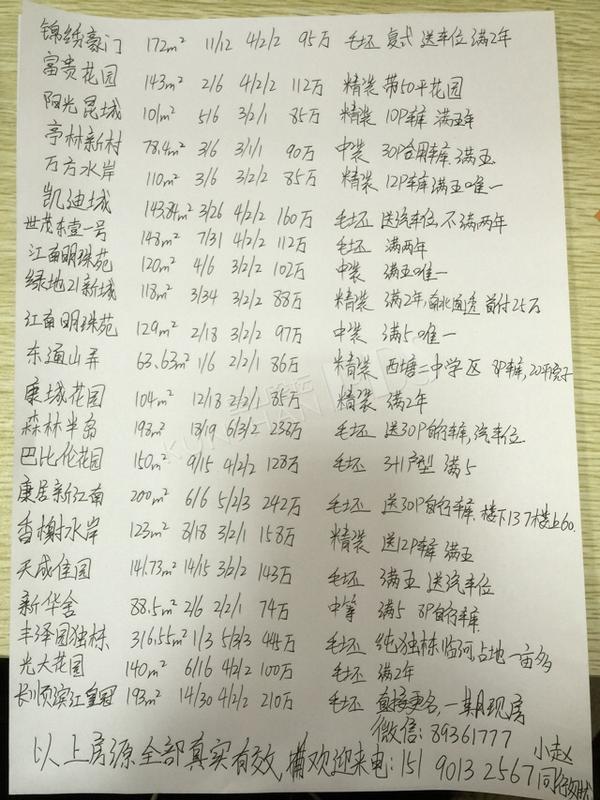 锦绣豪门 172m² 11/12 4/2/2 95万 毛坯 复式 送车位 满2年
富贵花园 143m² 2/6 4/2/2 112万 精装 带50平花园
阳光昆城 101m² 5/6 3/2/1 85万 精装 10P车库 满五年
亭林新村 78.4m² 3/6 3/1/1 90万 中装 30P合用车库.满五
万方水岸 110m² 3/6 3/2/2 85万 精装 12P车库满五唯一
凯迪城 143.84m² 3/26 4/2/2 160万 毛坯 送汽车位,不满两年
世茂东壹一号 148m² 7/31 4/2/2 112万 毛坯 满两年
江南明珠苑 120m² 4/6 3/2/2 102万 中装 满五唯一
绿地21新城 118m² 3/34 3/2/2 88万 精装 满2年,南北通透 首付25万
江南明珠苑 129m² 2/18 3/2/2 97万 中装 满5唯一
东通山弄 63.63m² 1/6 2/2/1 86万 精装 西塘二中学区 8P车库,20平院子
康城花园 104m² 12/18 2/2/1 85万 精装 满2年
森林半岛 198m² 18/19 6/3/2 238万 毛坯 送30P自行车库,汽车位
巴比伦花园 150m² 9/15 4/2/2 128万 毛坯 3+1户型 满5
康居新江南 200m² 6/6 5/2/3 242万 毛坯 送30P自行车库.楼下137楼上60.
香榭水岸 123m² 8/18 3/2/1 158万 精装 送12P车库 满五
天成佳园 141.73m² 14/15 3/2/2 143万 毛坯 满五 送汽车位
新华舍 88.5m² 2/6 2/2/1 74万 中等 满5 8P自行车库
丰泽园独栋 316.55m² 1/3 5/3/3 445万 毛坯 纯独栋临河占地一亩多
光大花园 140m² 6/16 4/2/2 100万 毛坯 满2年
长顺滨江皇冠 193m² 14/30 4/2/2 210万 毛坯 直接更名,一期现房
微信:89361777
以上房源全部真实有效,欢迎来电:151 9013 2567 小赵
同行勿扰